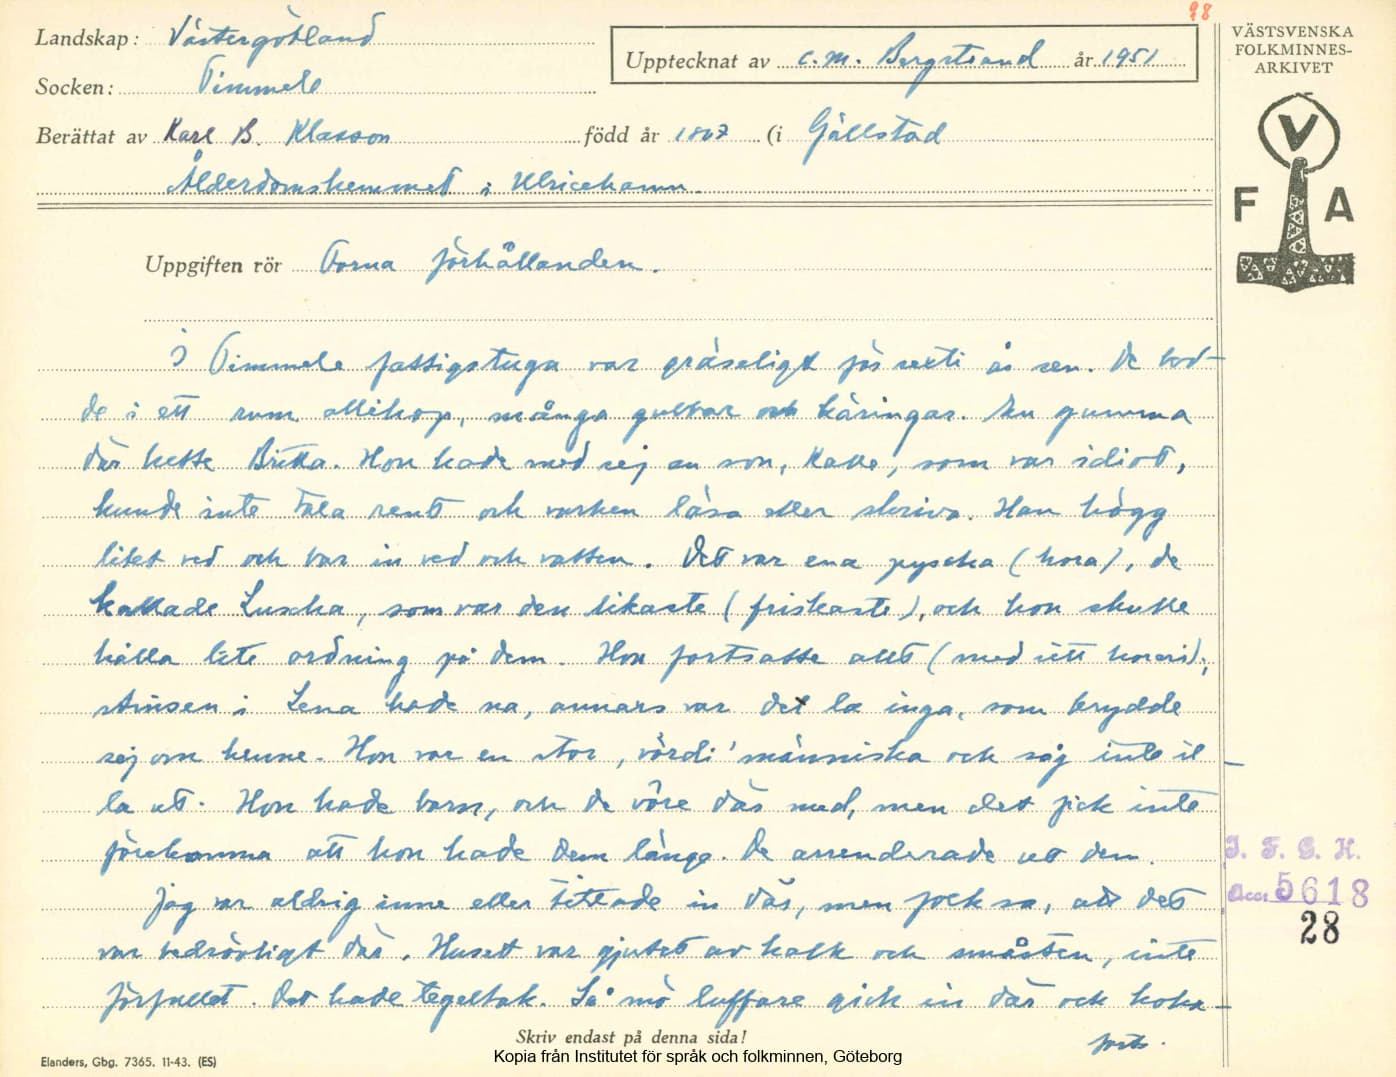 98
Landskap: Västergötland
Socken: Timmele
Upptecknat av C. M. Bergstrand år 1951
Berättat av Karl B. Klasson född år 1867 (i Gällstad
Ålderdomshemmet i Ulricehamn.
VÄSTSVENSKA
FOLKMINNES-
ARKIVET
V
F A
Uppgiften rör Forna förhållanden.
I Timmele fattigstuga var gräseligt för sexti år sen. De bod-
de i ett rum allihop, många gubbar och käringar. En gumma
där hette Britta. Hon hade med sej en son, Kalle, som var idiot,
kunde inte tala rent och varken läsa eller skriva. Han högg
litet ved och bar in ved och vatten. Det var ena (hora), de
kallade Luscha, som var den likaste (friskaste), och hon skulle
hålla lite ordning på dem. Hon fortsatte allt (med sitt horeri);
i Lena hade na, annars var det la inga, som brydde
sej om henne. Hon var en stor, 'människa och såg inte il-
la ut. Hon hade barn, och de våre där med, men det fick inte
förekomma att hon hade dem länge. De arrenderade ut dem.
Jag var aldrig inne eller tittade in där, men folk sa, att det
var bedrövligt där. Huset var gjutet av kalk och småsten, inte
förfallet. Det hade tegeltak. Så mö luffare gick in där och koka-
forts.
I. F. G. H.
Acc. 5618
28
Skriv endast på denna sida!
Elanders, Gbg. 7365. 11-43. (ES)
Kopia från Institutet för språk och folkminnen, Göteborg